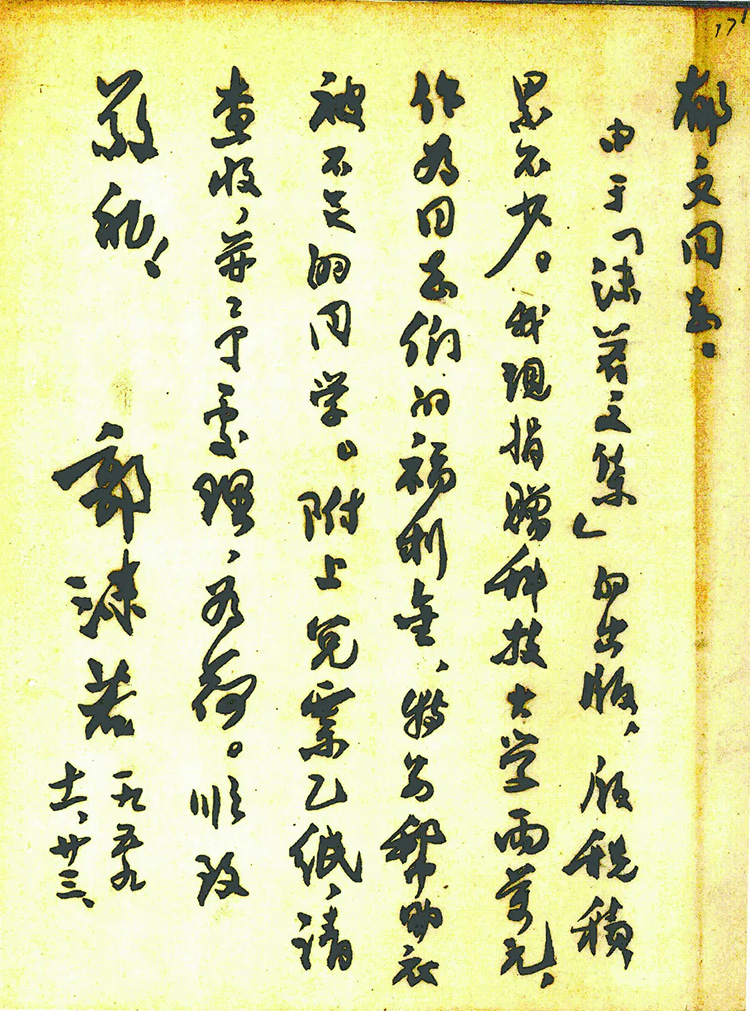 郁文同志：
由于「沫若文集」的出版，版税积
累不少。我现捐赠科技大学两万元，
作为同志们的福利金，特别帮助衣
被不足的同学。附上兑票乙纸，请
查收，并予处理，为荷。顺致
敬礼！
郭沫若
一九五九
十一、廿三、